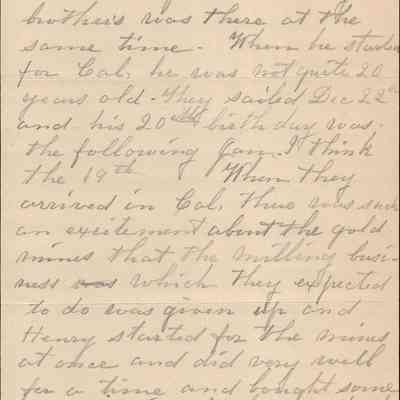 brothers was there at the
same time. When he started
for Cal, he was not quite 20
years old. They sailed Dec 22nd
and his 20th birthday was
the following Jan. I think
the 19th When they
arrived in Cal, there was such
an excitement about the gold
mines that the milling busi-
ness was which they expected
to do was given up and
Henry started for the mines
at once and did very well
for a time and bought some